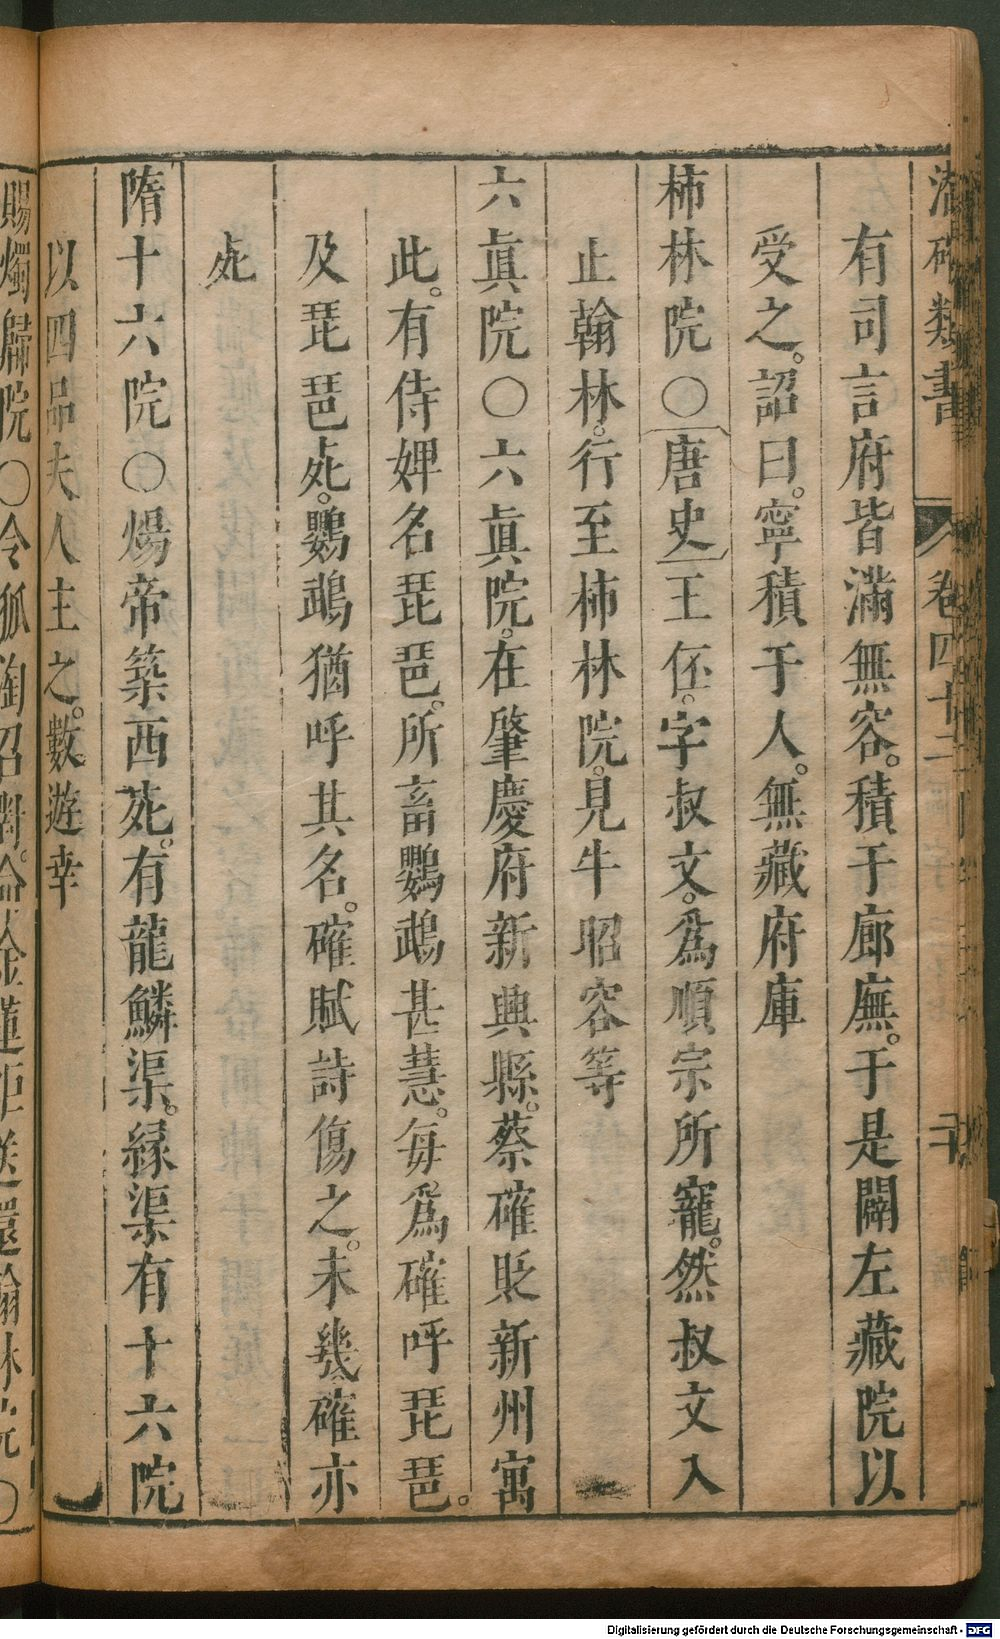 潛確類書 卷四十二 二十
有司言府皆滿無容。積于廊廡。于是闢左藏院以
受之。詔曰。寧積于人。無藏府庫
柿林院○〔唐史〕王伾。字叔文。為順宗所寵。然叔文入
止翰林。行至柿林院。見牛昭容等
六眞院○六眞院。在肇慶府新興縣。蔡確貶新州寓
此。有侍婢名琵琶。所畜鸚鵡甚慧。每爲確呼琵琶。
及琵琶死。鸚鵡猶呼其名。確賦詩傷之。未幾確亦
死
隋十六院○煬帝築西苑。有龍鱗渠。緣渠有十六院
以四品夫人主之。數遊幸
賜燭歸院○令狐綯召對。金蓮炬送還翰林院○
Digitalisierung gefördert durch die Deutsche Forschungsgemeinschaft - DFG